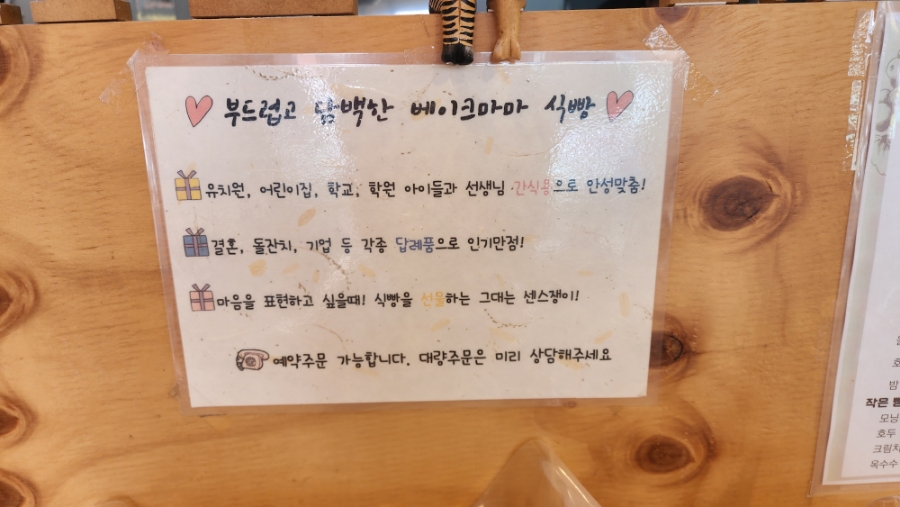 부드럽고 담백한 베이크마마 식빵
유치원, 어린이집, 학교, 학원 아이들과 선생님 간식용으로 안성맞춤!
결혼, 돌잔치, 기업 등 각종 답례품으로 인기만점!
마음을 표현하고 싶을때! 식빵을 선물하는 그대는 센스쟁이!
예약주문 가능합니다. 대량주문은 미리 상담해주세요
밤
작은
모닝
호두
크림치
옥수수